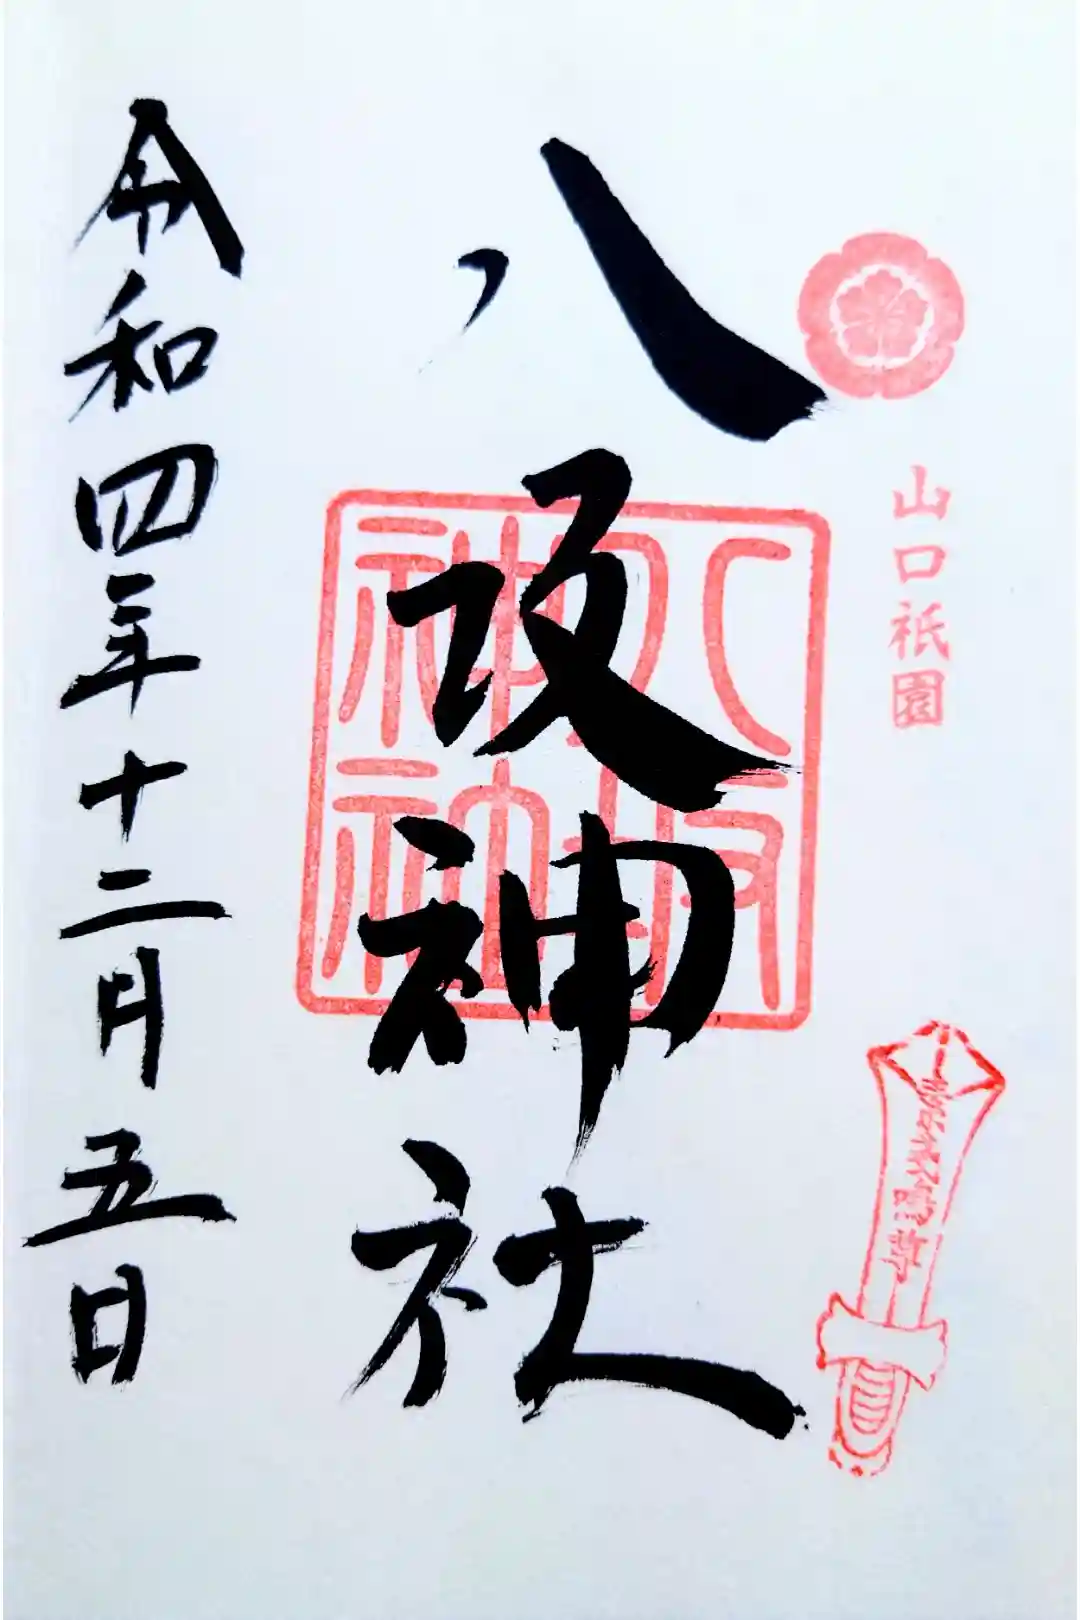 山口祇園
素盞嗚尊
八坂神社
八坂神社
令和四年十二月五日